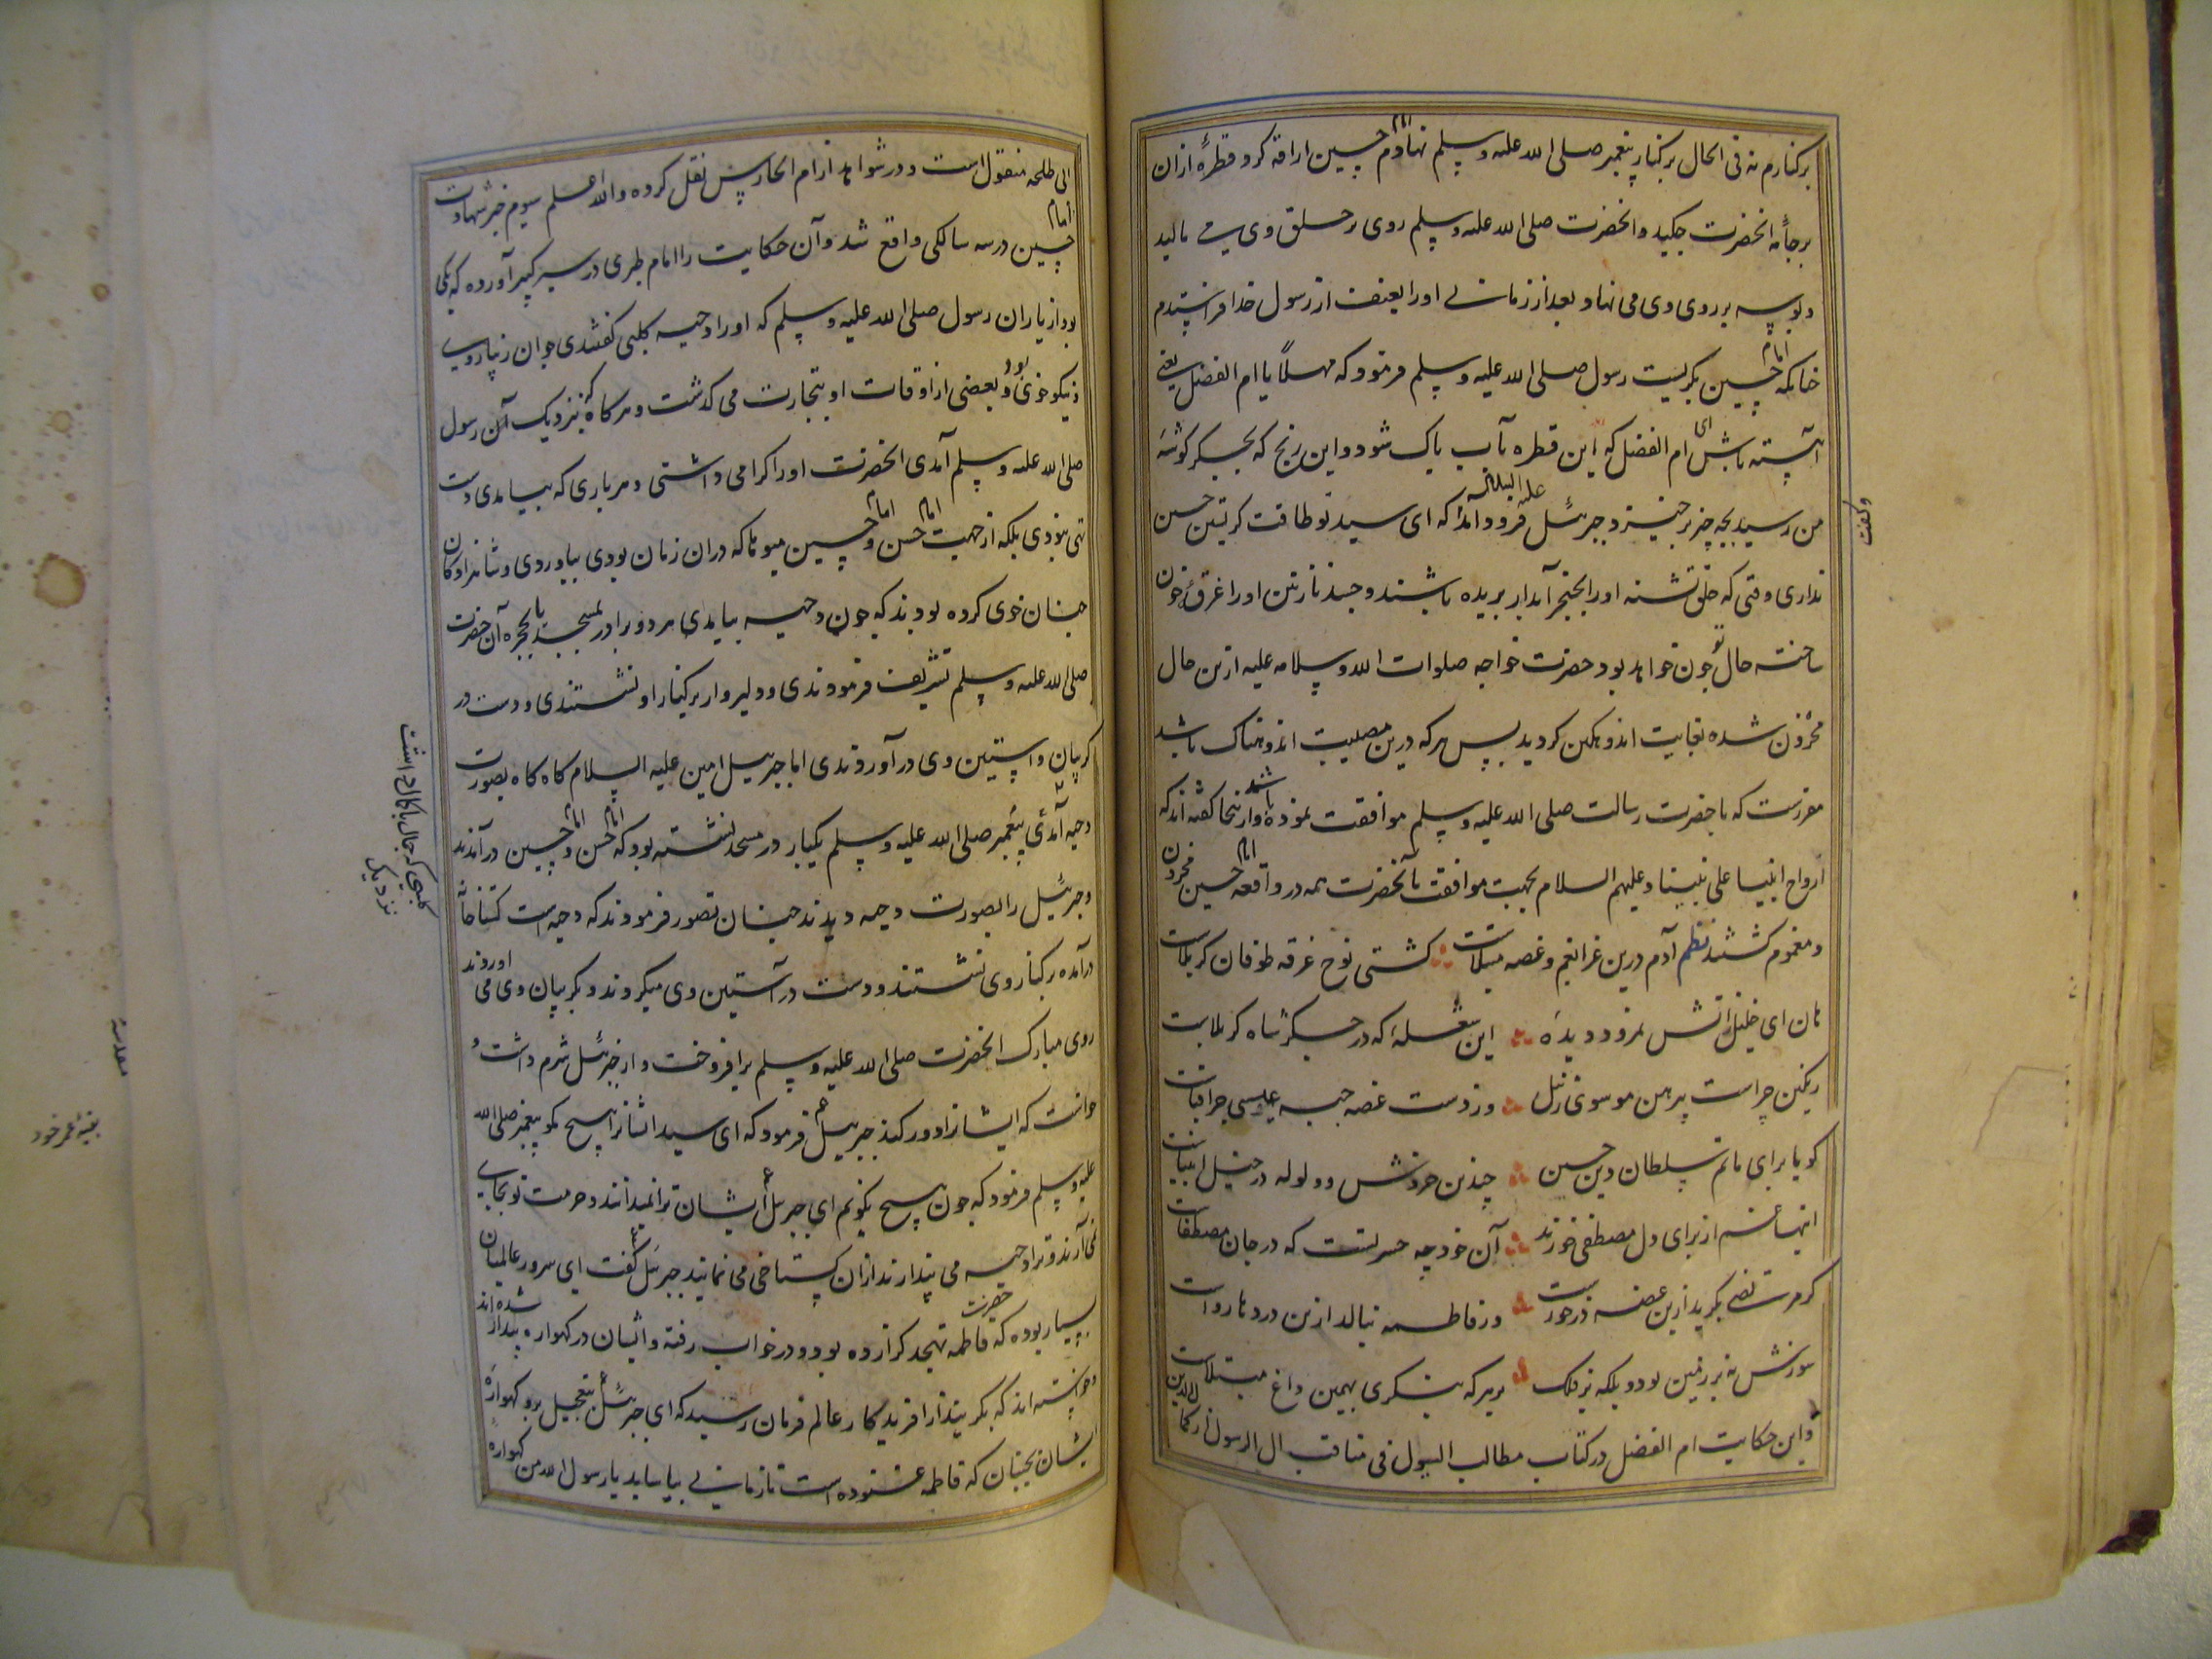 برکنارم نه فی الحال برکنار پیغمبر صلی الله علیه وسلم نهادم امام حسین اراقه کرد و قطرهٔ ازان
برجامهٔ انحضرت چکید وانحضرت صلی الله علیه وسلم روی بر حلق وی می مالید
و بوسه بر روی وی می نهاد و بعد از زمانی او را بعنف از رسول خدا فراستدم
چنانکه امام حسین بگریست رسول صلی الله علیه وسلم فرمود که مهلاً یا ام الفضل یعنی
آهسته باش ای ام الفضل که این قطره بآب پاک شود و این رنج که بجگر گوشهٔ
من رسید بچه چیز برخیزد جبرئیل علیه السلام فرود آمد که ای سید تو طاقت گریستن حسین
وگفت
نداری وقتی که حلق تشنه او را بخنجر آبدار بریده باشند و جسد نازنین او را غرقهٔ خون
ساخته حال تو چون خواهد بود حضرت خواجه صلوات الله وسلامه علیه ازین حال
محزون شده بغایت اندوهگین گردید پس هر که درین مصیبت اندوهناک باشد
مقررست که با حضرت رسالت صلی الله علیه وسلم موافقت نموده باشد وازینجا گفته اند که
ارواح انبیا علی نبینا و علیهم السلام بجهت موافقت بآنحضرت همه در واقعه امام حسین محزون
و مغموم گشتند نظم آدم درین عزا بغم و غصه مبتلاست کشتی نوح غرقه طوفان کربلاست
هان ای خلیل آتش نمرود دیدهٔ این شعله که در جگر شاه کربلاست
رنگین چراست پیرهن موسوی ز نیل وز دست غصه جبه عیسی چرا قباست
گویا برای ماتم سلطان دین حسین چندین خروش و ولوله در خیل انبیاست
اینها غم از برای دل مصطفی خورند آن خود چه حسرتست که در جان مصطفاست
گر مرتضی بگرید ازین غصه درخورست ور فاطمه بنالد ازین درد نارواست
سوزش نه بر زمین بود و بلکه بر فلک بر هر که بنگری بهمین داغ مبتلاست
و این حکایت ام الفضل در کتاب مطالب السول فی مناقب ال الرسول از کمال الدین
ابی طلحه منقول است و در شواهد از ام الحارث نقل کرده والله اعلم سیوم خبر شهادت
امام حسین در سه سالگی واقع شد و آن حکایت را امام طبری در سیر کبیر آورده که یکی
بود از یاران رسول صلی الله علیه وسلم که او را دحیه کلبی گفتندی جوان زیباروی
نیکو خوی بود و بعضی از اوقات او بتجارت می گذشت و هرگاه که بنزدیک آن رسول
صلی الله علیه وسلم آمدی انحضرت او را گرامی داشتی و هر باری که بیامدی دست
تهی نبودی بلکه از جهت امام حسن و امام حسین میوهٔ که دران زمان بودی بیاوردی و شاهزادگان
چنان خوی کرده بودند که چون دحیه بیامدی هر دو برادر بمسجد یا بحجره آن حضرت
صلی الله علیه وسلم تشریف فرمودندی و دلیروار برکنار او نشستندی و دست در
گریبان و استین وی درآوردندی اما جبرئیل امین علیه السلام گاه گاه بصورت
کلبی که جمال با کمال داشت
نزدیک
دحیه آمدی پیغمبر صلی الله علیه وسلم یکبار در مسجد نشسته بود که امام حسن و امام حسین درآمدند
و جبرئیل را بصورت دحیه دیدند چنان تصور فرمودند که دحیه است گستاخانه
درآمده برکنار وی نشستند و دست در آستین وی میکردند و گریبان وی می اوردند
روی مبارک انحضرت صلی الله علیه وسلم برافروخت و از جبرئیل شرم داشت و
خواست که ایشانرا دور کند جبرئیل فرمود که ای سید ایشانرا هیچ مگو پیغمبر صلی الله
علیه وسلم فرمود که چون هیچ نگویم ای جبرئیل ایشان ترا نمیدانند و حرمت تو بجای
نمی آرند و ترا دحیه می پندارند ازان گستاخی می نمایند جبرئیل گفت ای سرور عالمیان
بسیار بوده که حضرت فاطمه تهجد گزارده بود و در خواب رفته و ایشان در گهواره بیدار شده اند
و خواسته اند که بگریند از آفریدگار عالم فرمان رسید که ای جبرئیل بتعجیل برو گهوارهٔ
ایشان بجنبان که فاطمه غنوده است تا زمانی بیاساید یا رسول الله من گهوارهٔ
بقیه عمر خود